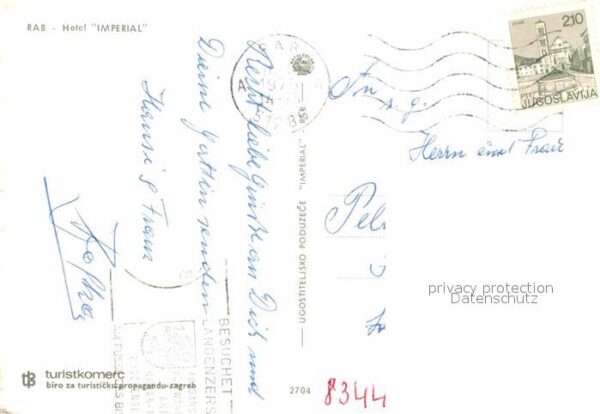 RAB - Hotel "IMPERIAL"
Recht liebe Grüße an Dich und
Deine Gattin senden
Hansi & Franz
An
s. g.
Herrn und Frau
2,10
JUGOSLAVIJA
UGOSTITELJSKO PODUZEĆE "IMPERIAL" - RAB
BESUCHET
LANGENZERS
privacy protection
Datenschutz
turistkomerc
biro za turističku propagandu-zagreb
2704
8344